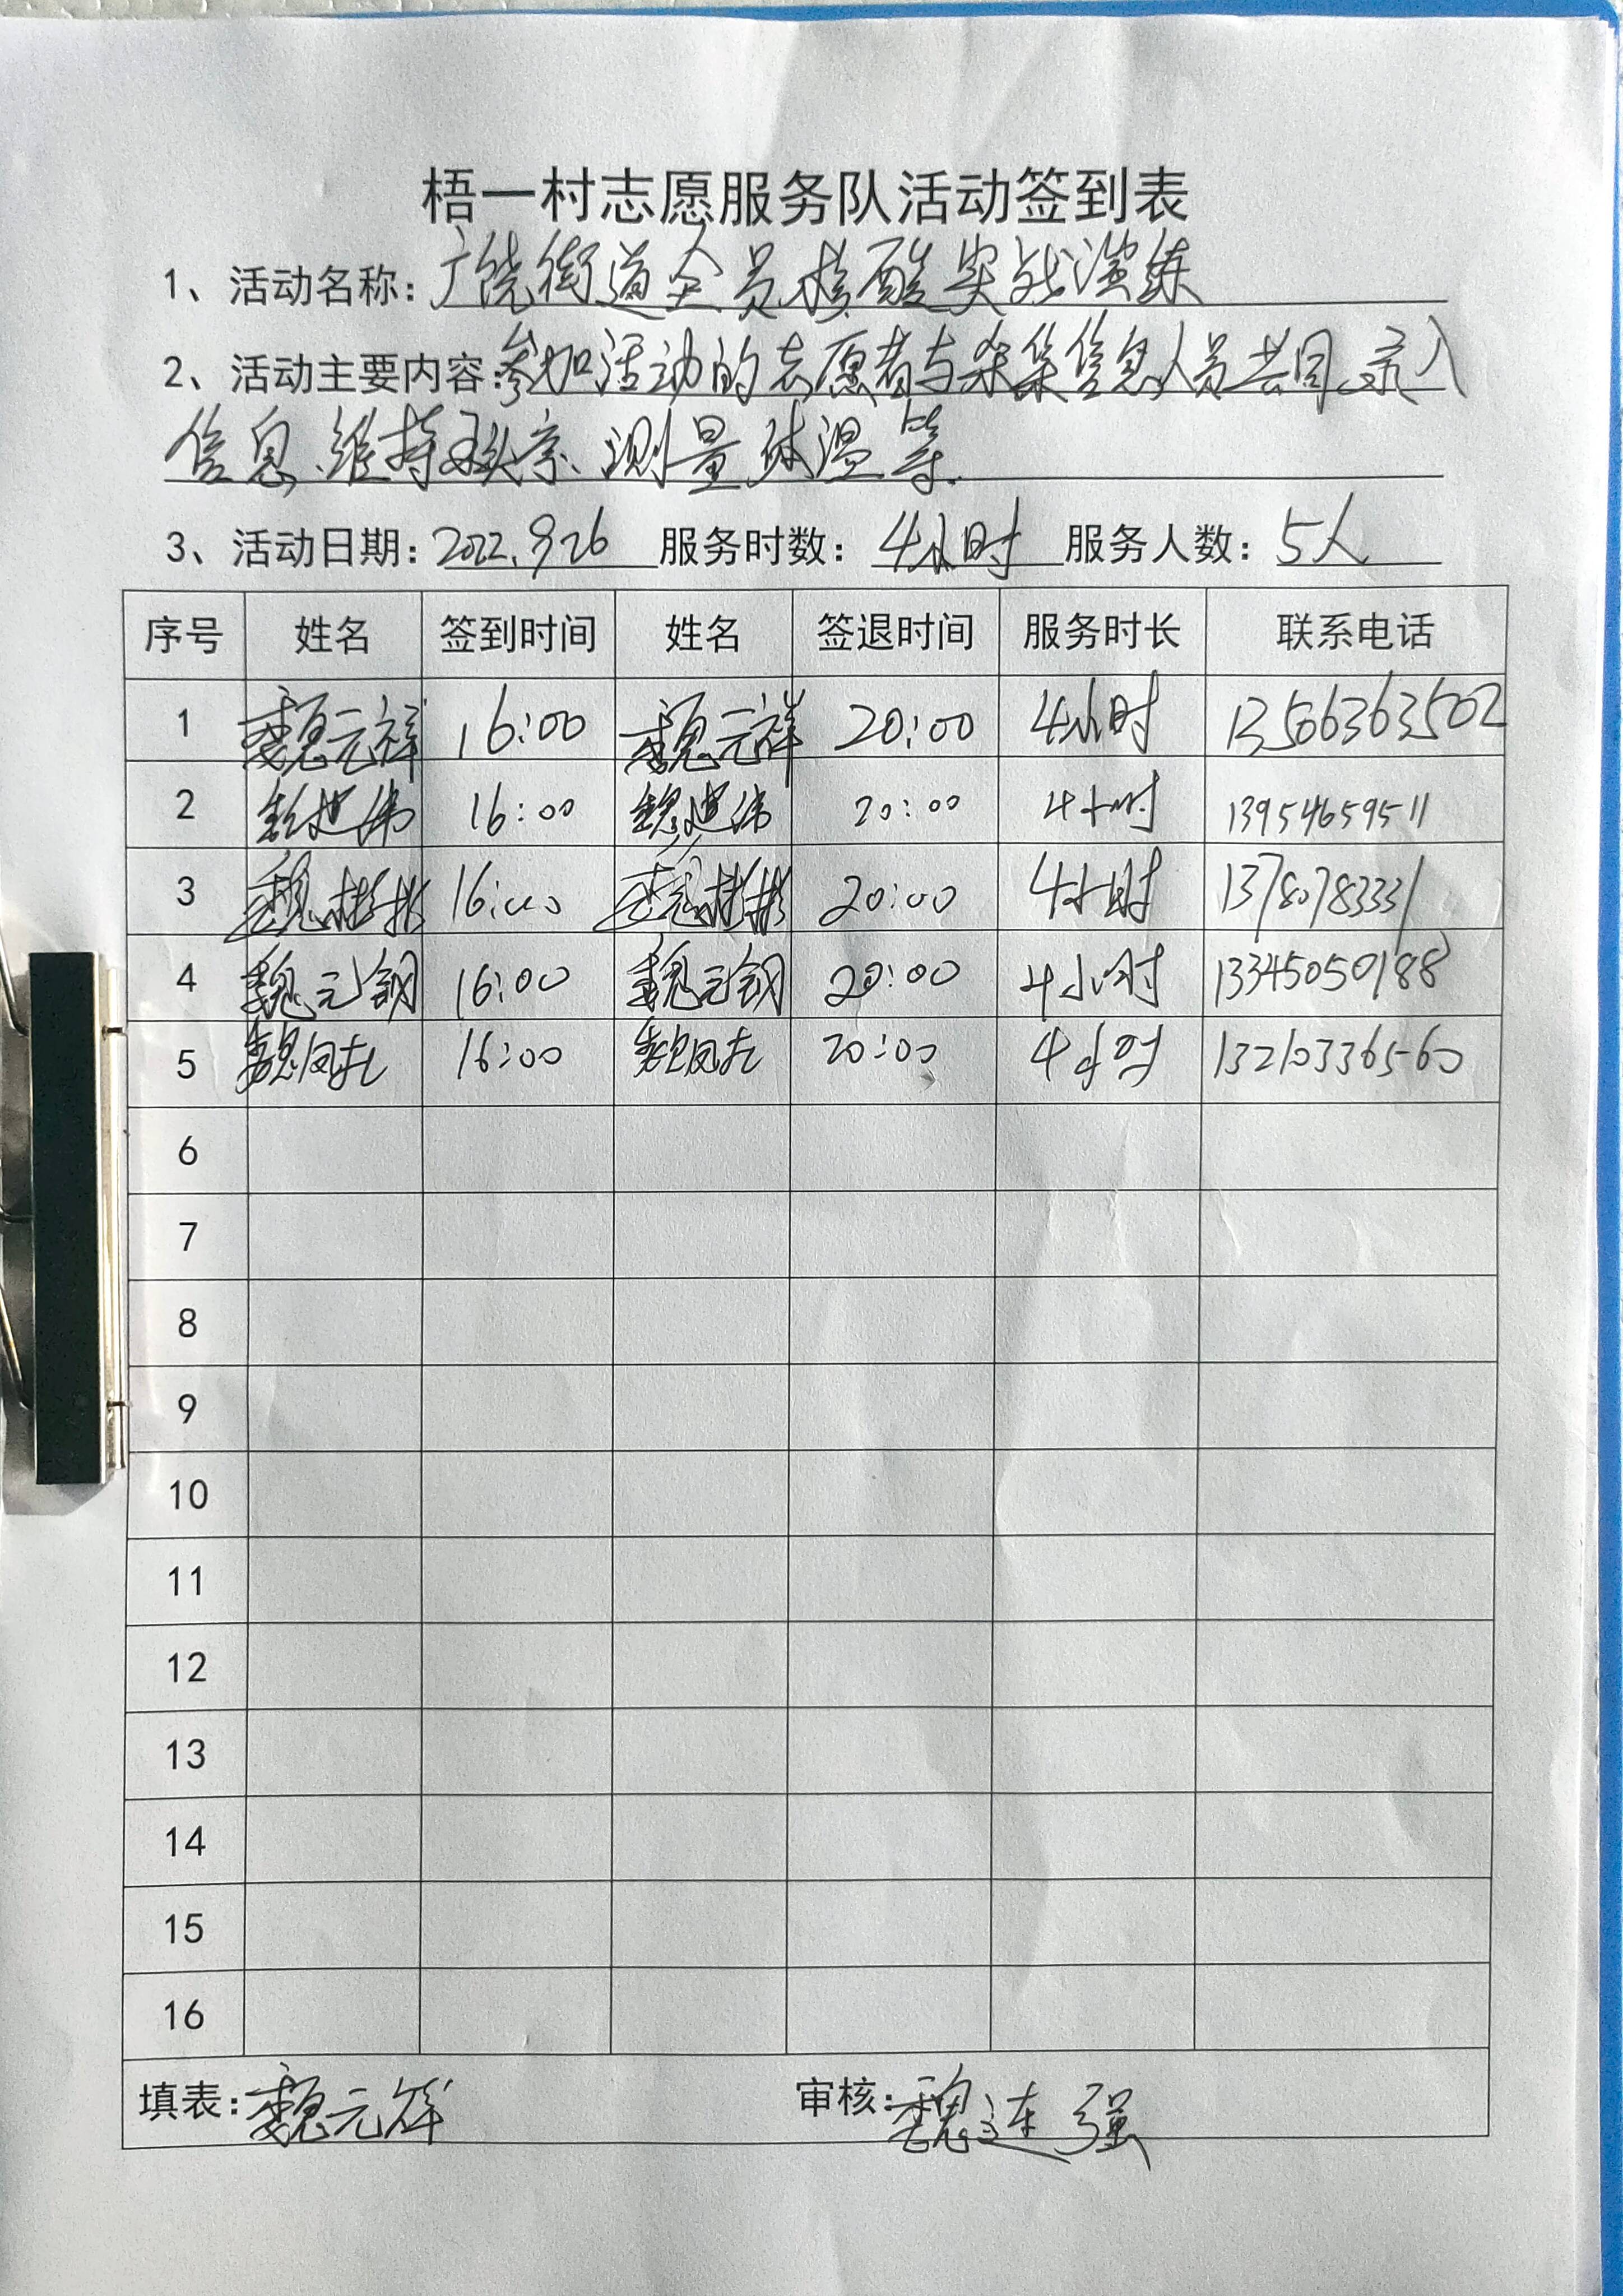 梧一村志愿服务队活动签到表
1、活动名称：广饶街道全员核酸实战演练
2、活动主要内容：参加活动的志愿者与采集信息人员共同录入
信息、维持秩序、测量体温等.
3、活动日期：2022.9.26 服务时数：4小时 服务人数：5人
序号 姓名 签到时间 姓名 签退时间 服务时长 联系电话
1 魏元祥 16:00 魏元祥 20:00 4小时 13506363502
2 魏建伟 16:00 魏建伟 20:00 4小时 13954659511
3 魏彬彬 16:00 魏彬彬 20:00 4小时 13780783331
4 魏元钢 16:00 魏元钢 20:00 4小时 13345050188
5 魏凤 16:00 魏凤 20:00 4小时 13210336560
6
7
8
9
10
11
12
13
14
15
16
填表：魏元祥 审核：魏连强